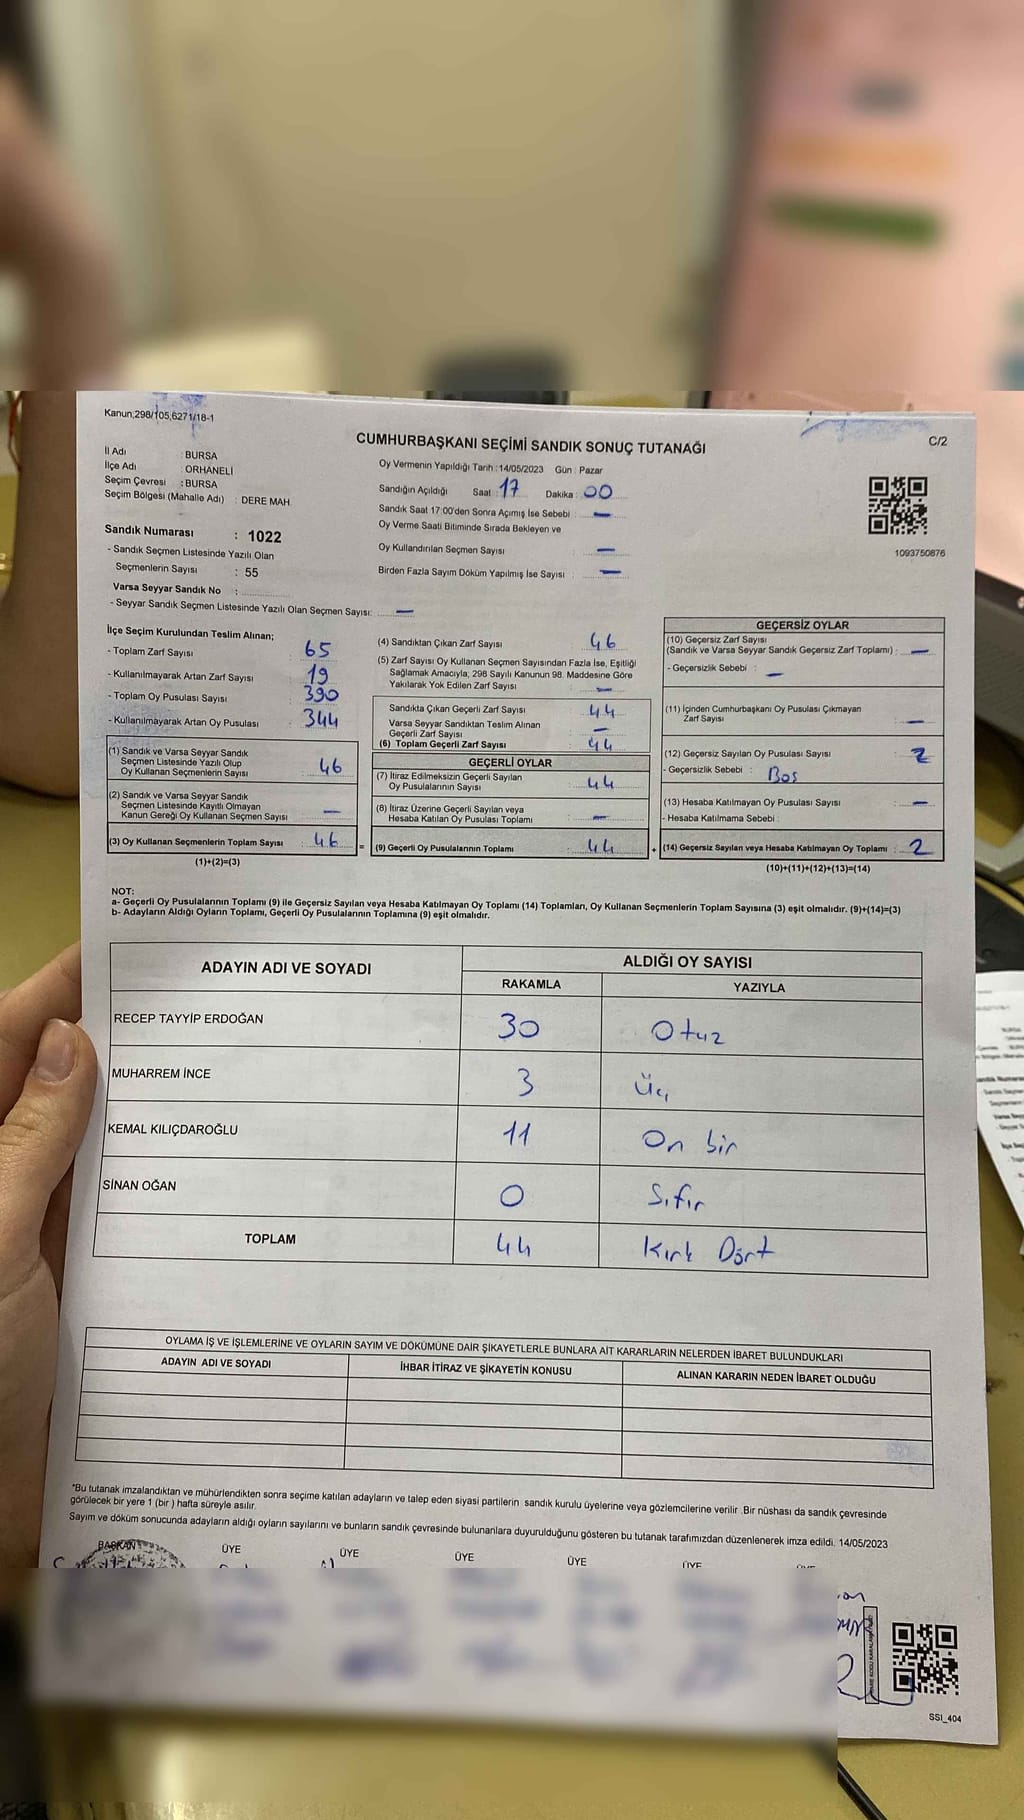 Kanun;298/105,6271/18-1
CUMHURBAŞKANI SEÇİMİ SANDIK SONUÇ TUTANAĞI
C/2
İl Adı : BURSA
İlçe Adı : ORHANELİ
Seçim Çevresi : BURSA
Seçim Bölgesi (Mahalle Adı) : DERE MAH.
Oy Vermenin Yapıldığı Tarih :14/05/2023 Gün : Pazar
Sandığın Açıldığı Saat : 17 Dakika : 00
Sandık Saat 17:00'den Sonra Açımış İse Sebebi : —
Oy Verme Saati Bitiminde Sırada Bekleyen ve
Oy Kullandırılan Seçmen Sayısı : —
Birden Fazla Sayım Döküm Yapılmış İse Sayısı : —
1093750876
Sandık Numarası : 1022
- Sandık Seçmen Listesinde Yazılı Olan
Seçmenlerin Sayısı : 55
Varsa Seyyar Sandık No :
- Seyyar Sandık Seçmen Listesinde Yazılı Olan Seçmen Sayısı: —
İlçe Seçim Kurulundan Teslim Alınan;
- Toplam Zarf Sayısı : 65
- Kullanılmayarak Artan Zarf Sayısı : 19
- Toplam Oy Pusulası Sayısı : 390
- Kullanılmayarak Artan Oy Pusulası : 344
(1) Sandık ve Varsa Seyyar Sandık
Seçmen Listesinde Yazılı Olup
Oy Kullanan Seçmenlerin Sayısı : 46
(2) Sandık ve Varsa Seyyar Sandık
Seçmen Listesinde Kayıtlı Olmayan
Kanun Gereği Oy Kullanan Seçmen Sayısı : —
(3) Oy Kullanan Seçmenlerin Toplam Sayısı : 46 =
(1)+(2)=(3)
(4) Sandıktan Çıkan Zarf Sayısı : 46
(5) Zarf Sayısı Oy Kullanan Seçmen Sayısından Fazla İse, Eşitliği
Sağlamak Amacıyla, 298 Sayılı Kanunun 98. Maddesine Göre
Yakılarak Yok Edilen Zarf Sayısı : —
Sandıkta Çıkan Geçerli Zarf Sayısı : 44
Varsa Seyyar Sandıktan Teslim Alınan
Geçerli Zarf Sayısı : —
(6) Toplam Geçerli Zarf Sayısı : 44
GEÇERLİ OYLAR
(7) İtiraz Edilmeksizin Geçerli Sayılan
Oy Pusulalarının Sayısı : 44
(8) İtiraz Üzerine Geçerli Sayılan veya
Hesaba Katılan Oy Pusulası Toplamı : —
(9) Geçerli Oy Pusulalarının Toplamı : 44 +
GEÇERSİZ OYLAR
(10) Geçersiz Zarf Sayısı
(Sandık ve Varsa Seyyar Sandık Geçersiz Zarf Toplamı) : —
- Geçersizlik Sebebi : —
(11) İçinden Cumhurbaşkanı Oy Pusulası Çıkmayan
Zarf Sayısı : —
(12) Geçersiz Sayılan Oy Pusulası Sayısı : 2
- Geçersizlik Sebebi : Boş
(13) Hesaba Katılmayan Oy Pusulası Sayısı : —
- Hesaba Katılmama Sebebi :
(14) Geçersiz Sayılan veya Hesaba Katılmayan Oy Toplamı : 2
(10)+(11)+(12)+(13)=(14)
NOT:
a- Geçerli Oy Pusulalarının Toplamı (9) ile Geçersiz Sayılan veya Hesaba Katılmayan Oy Toplamı (14) Toplamları, Oy Kullanan Seçmenlerin Toplam Sayısına (3) eşit olmalıdır. (9)+(14)=(3)
b- Adayların Aldığı Oyların Toplamı, Geçerli Oy Pusulalarının Toplamına (9) eşit olmalıdır.
ADAYIN ADI VE SOYADI ALDIĞI OY SAYISI
RAKAMLA YAZIYLA
RECEP TAYYİP ERDOĞAN 30 Otuz
MUHARREM İNCE 3 Üç
KEMAL KILIÇDAROĞLU 11 On bir
SİNAN OĞAN 0 Sıfır
TOPLAM 44 Kırk Dört
OYLAMA İŞ VE İŞLEMLERİNE VE OYLARIN SAYIM VE DÖKÜMÜNE DAİR ŞİKAYETLERLE BUNLARA AİT KARARLARIN NELERDEN İBARET BULUNDUKLARI
ADAYIN ADI VE SOYADI İHBAR İTİRAZ VE ŞİKAYETİN KONUSU ALINAN KARARIN NEDEN İBARET OLDUĞU
*Bu tutanak imzalandıktan ve mühürlendikten sonra seçime katılan adayların ve talep eden siyasi partilerin sandık kurulu üyelerine veya gözlemcilerine verilir .Bir nüshası da sandık çevresinde
görülecek bir yere 1 (bir ) hafta süreyle asılır.
Sayım ve döküm sonucunda adayların aldığı oyların sayılarını ve bunların sandık çevresinde bulunanlara duyurulduğunu gösteren bu tutanak tarafımızdan düzenlenerek imza edildi. 14/05/2023
BAŞKAN ÜYE ÜYE ÜYE ÜYE ÜYE
SSI_404